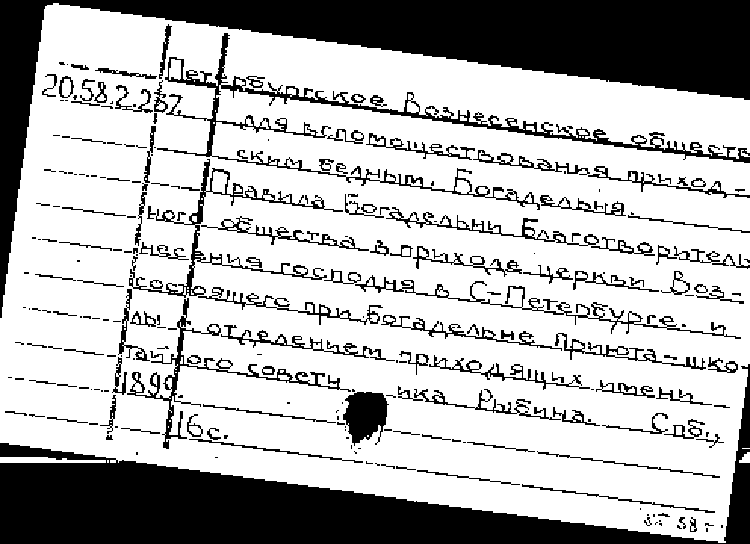 Петербургское Вознесенское обществ
20.58.2.237.
для вспомоществования приход-
ским бедным. Богадельня.
Правила Богадельни Благотворитель
ного общества в приходе церкви Воз-
несения господня в С-Петербурге. и
состоящего при богадельне Приюта-шко-
лы с отделением приходящих имени
тайного советн ика Рыбина. Спб.,
1899.
16 с.